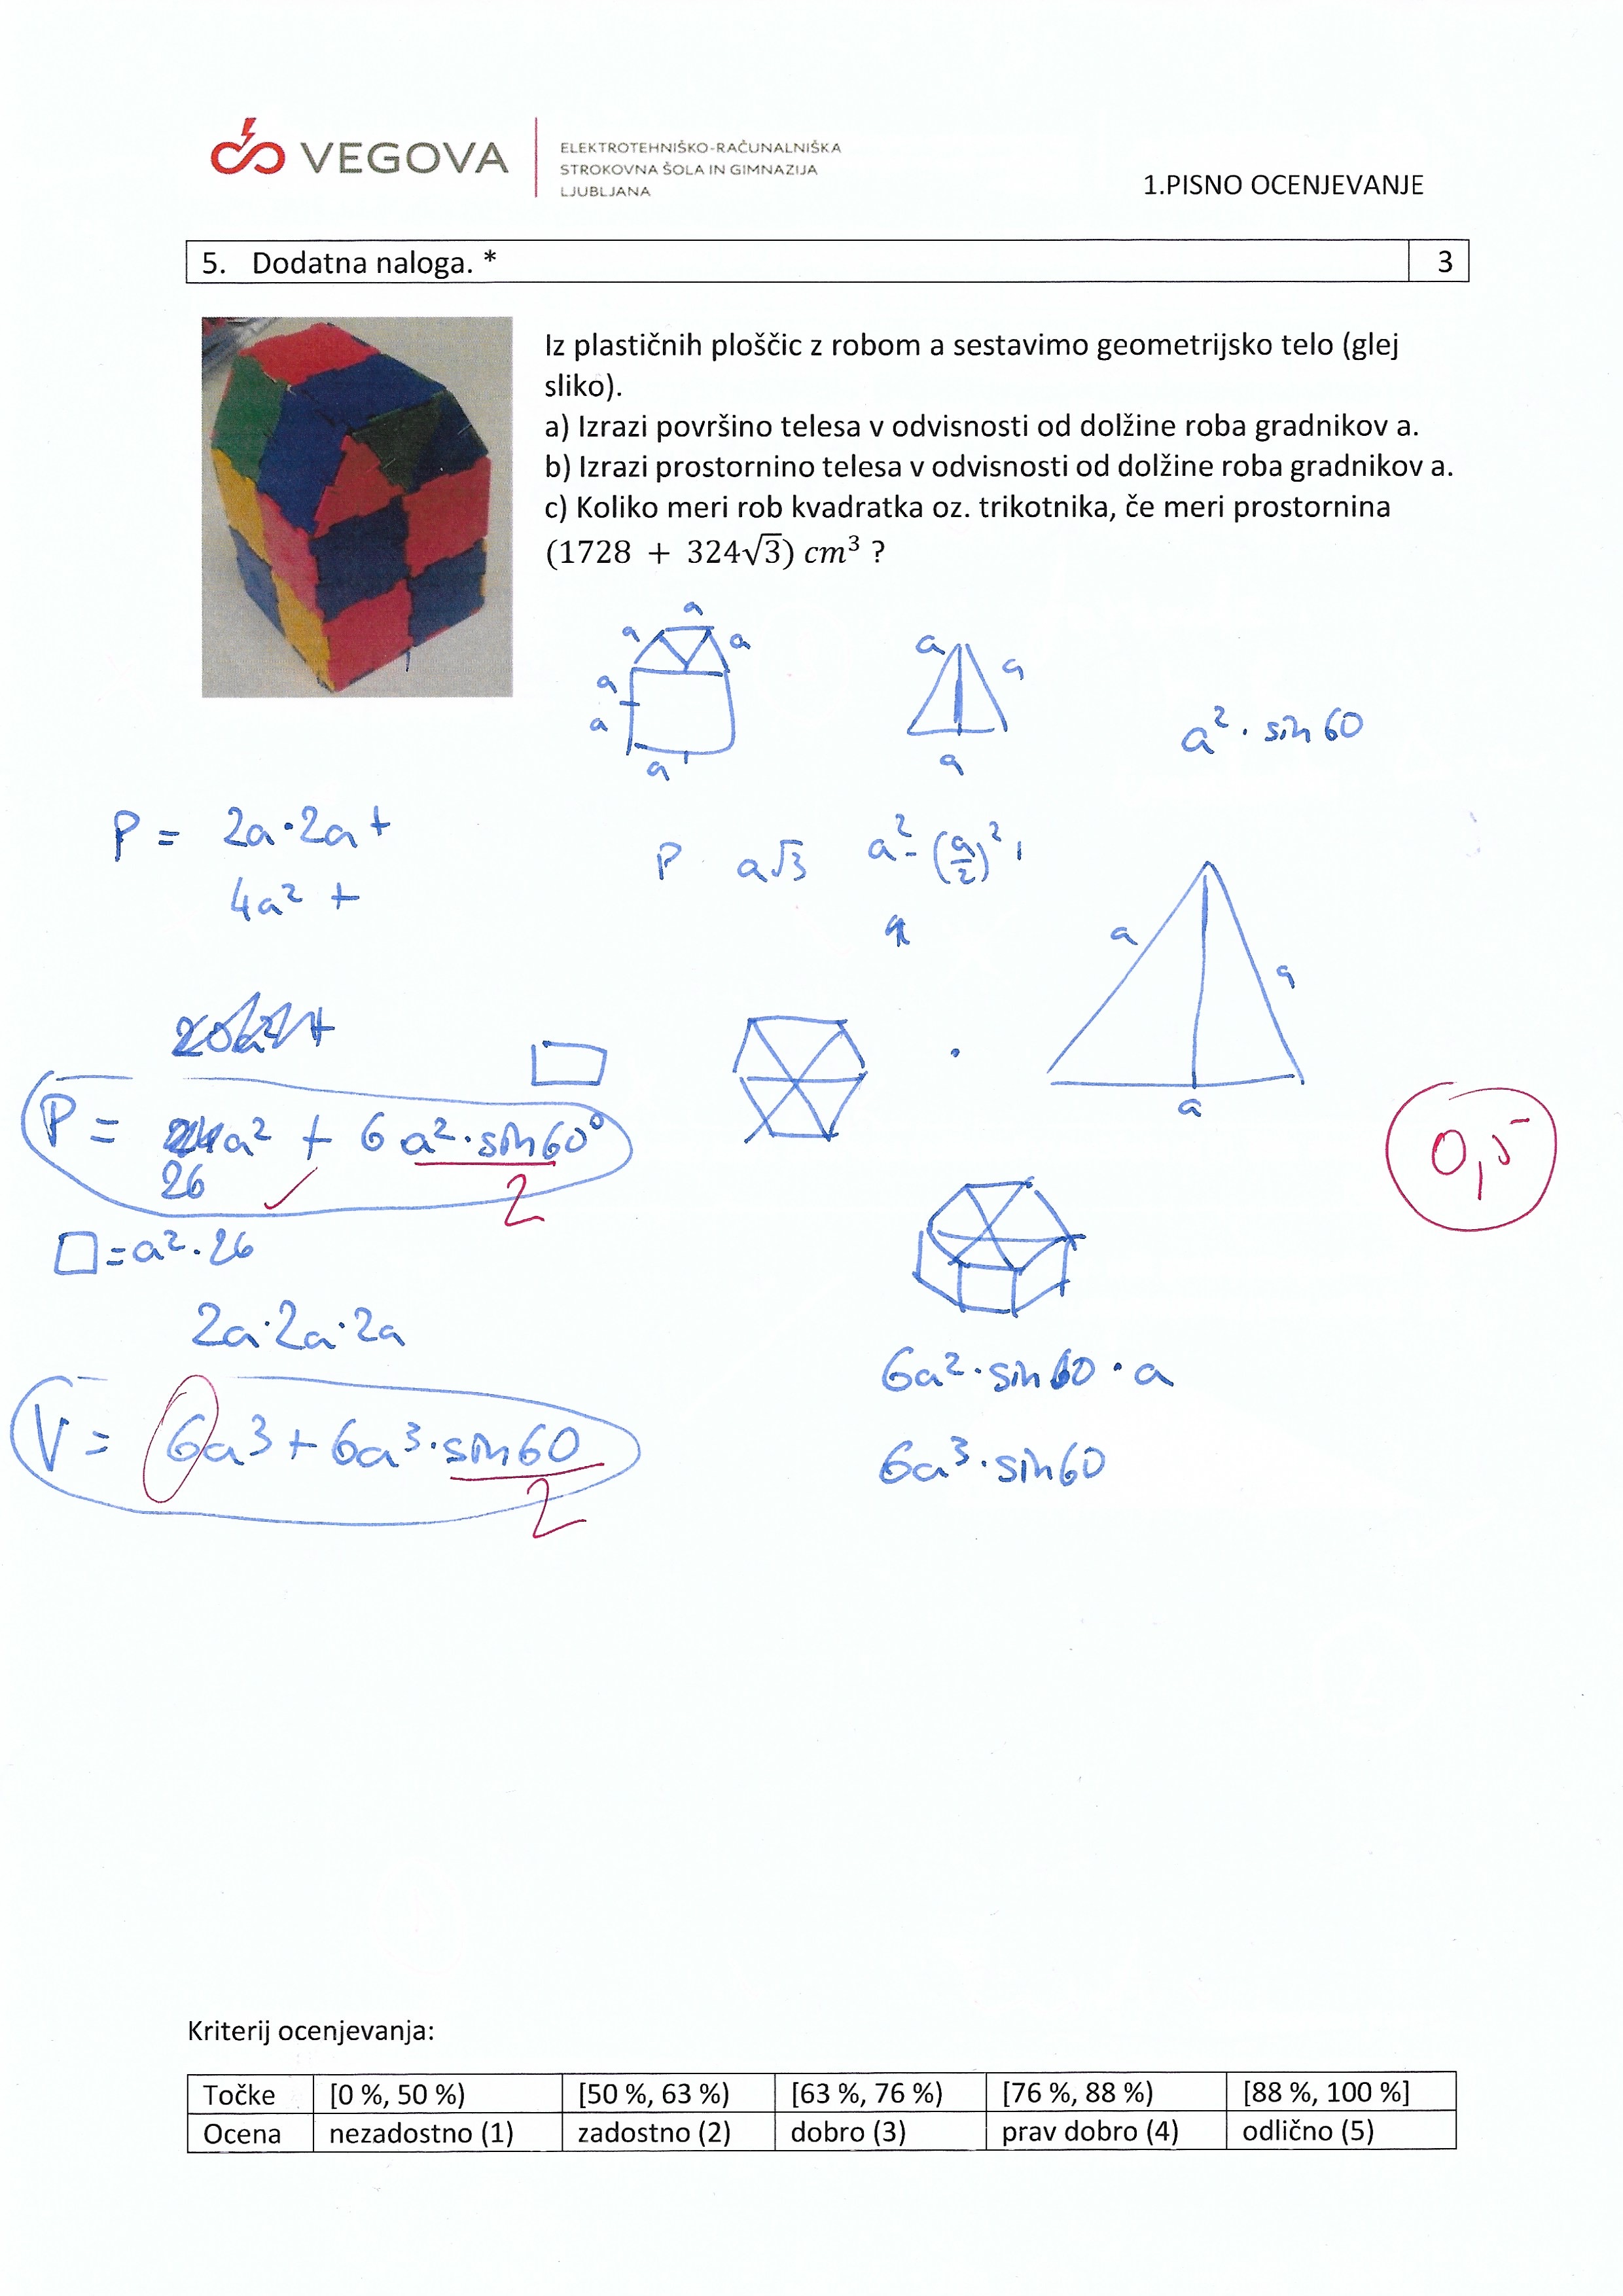 VEGOVA
ELEKTROTEHNIŠKO-RAČUNALNIŠKA
STROKOVNA ŠOLA IN GIMNAZIJA
LJUBLJANA
1.PISNO OCENJEVANJE
5. Dodatna naloga. * 3
Iz plastičnih ploščic z robom a sestavimo geometrijsko telo (glej
sliko).
a) Izrazi površino telesa v odvisnosti od dolžine roba gradnikov a.
b) Izrazi prostornino telesa v odvisnosti od dolžine roba gradnikov a.
c) Koliko meri rob kvadratka oz. trikotnika, če meri prostornina
(1728 + 324√3) cm³ ?
a
a a
a
a
a
a a
a
a² · sin 60
P = 2a·2a +
4a² +
P a√3 a² - (a/2)²
a
a
a
a
P = a² + 6 a² · sin60°
26
2
0,5
□ = a² · 26
2a·2a·2a
6a² · sin 60 · a
V = 6a³ + 6a³ · sin60
2
6a³ · sin60
Kriterij ocenjevanja:
Točke [0 %, 50 %) [50 %, 63 %) [63 %, 76 %) [76 %, 88 %) [88 %, 100 %]
Ocena nezadostno (1) zadostno (2) dobro (3) prav dobro (4) odlično (5)